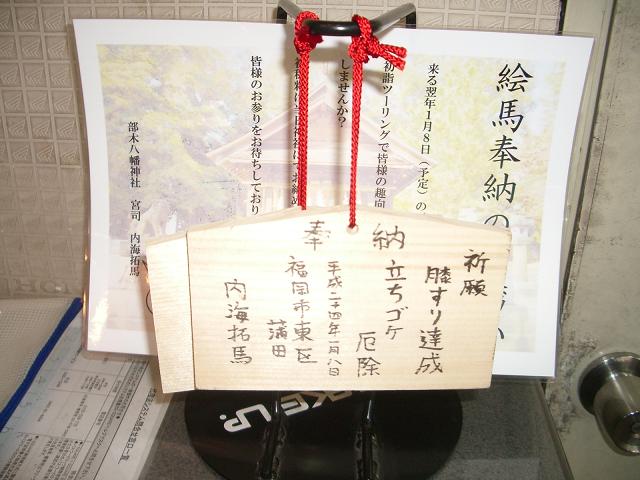 絵馬奉納の
来る翌年1月8日（予定）の
初詣ツーリングで皆様の趣向
しませんか？
皆様のお参りをお待ちしており
部木八幡神社　宮司　内海拓馬
奉納
祈願
膝すり達成
立ちゴケ
厄除
平成二十四年一月八日
福岡市東区
蒲田
内海拓馬